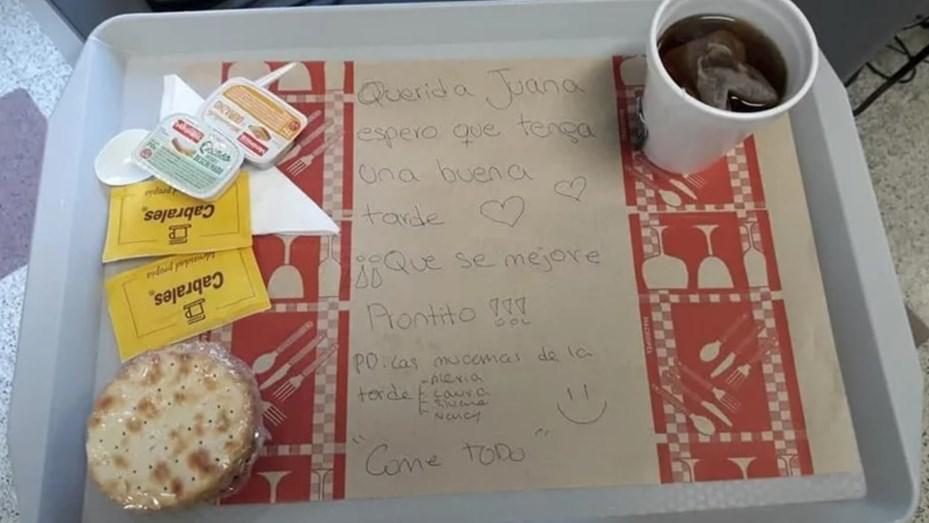 Querida Juana
espero que tenga
una buena
tarde
¡¡¡Que se mejore
Prontito !!!
PD: Las mucamas de la
tarde
- Laura
- Silvana
- Nancy
"Come TODO"
Cabrales®
identidad propia
Cabrales®
identidad propia